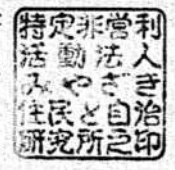 特定非営利
活動法人
みやざき
住民と自治
研究所之印